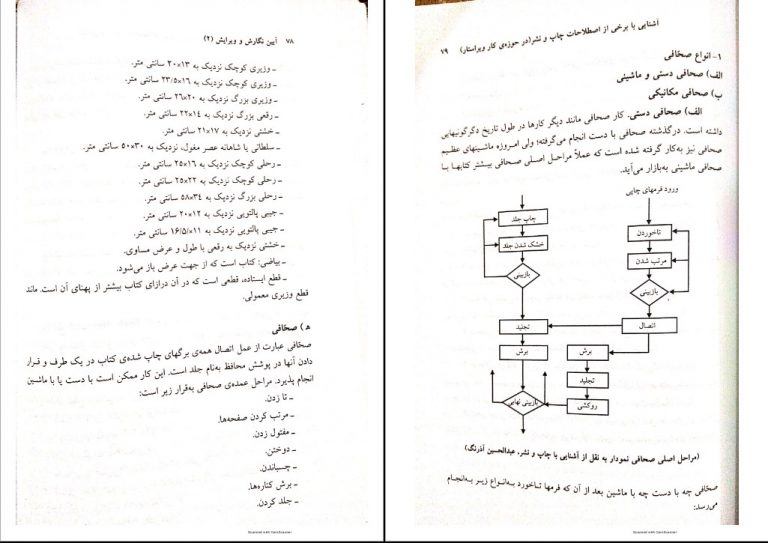 ۷۸ آیین نگارش و ویرایش (۲)
ـ وزیری کوچک نزدیک به ۱۳×۲۰ سانتی متر.
ـ وزیری کوچک نزدیک به ۱۶×۲۳/۵ سانتی متر.
ـ وزیری بزرگ نزدیک به ۲۰×۲۶ سانتی متر.
ـ رقعی بزرگ نزدیک به ۱۴×۲۲ سانتی متر.
ـ خشتی نزدیک به ۱۷×۲۱ سانتی متر.
ـ سلطانی یا شاهانه عصر مغول، نزدیک به ۳۰×۵۰ سانتی متر.
ـ رحلی کوچک نزدیک به ۱۶×۲۵ سانتی متر.
ـ رحلی کوچک نزدیک به ۲۲×۲۵ سانتی متر.
ـ رحلی بزرگ نزدیک به ۳۴×۵۸ سانتی متر.
ـ جیبی پالتویی نزدیک به ۱۲×۲۰ سانتی متر.
ـ جیبی پالتویی نزدیک به ۱۱×۱۶/۵ سانتی متر.
ـ خشتی نزدیک به رقعی با طول و عرض مساوی.
ـ بیاضی: کتاب است که از جهت عرض باز می‌شود.
ـ قطع ایستاده، قطعی است که در آن درازای کتاب بیشتر از پهنای آن است. مانند
قطع وزیری معمولی.
ه‍) صحّافی
صحّافی عبارت از عمل اتصال همه‌ی برگهای چاپ شده‌ی کتاب در یک طرف و قرار
دادن آنها در پوشش محافظ به‌نام جلد است. این کار ممکن است با دست یا با ماشین
انجام پذیرد. مراحل عمده‌ی صحافی به‌قرار زیر است:
ـ تا زدن.
ـ مرتب کردن صفحه‌ها.
ـ مفتول زدن.
ـ دوختن.
ـ چسباندن.
ـ برش کناره‌ها.
ـ جلد کردن.
Scanned with CamScanner
آشنایی با برخی از اصطلاحات چاپ و نشر(در حوزه‌ی کار ویراستار) ۷۹
۱- انواع صحّافی
الف) صحافی دستی و ماشینی
ب) صحافی مکانیکی
الف) صحافی دستی. کار صحافی مانند دیگر کارها در طول تاریخ دگرگونیهایی
داشته است. درگذشته صحافی با دست انجام می‌گرفته؛ ولی امروزه ماشینهای عظیم
صحافی نیز به‌کار گرفته شده است که عملاً مراحل اصلی صحافی بیشتر کتابها با
صحافی ماشینی به‌بازار می‌آید.
ورود فرمهای چاپی
تاخوردن
مرتب شدن
بازبینی
اتصال
برش
تجلید
روکشی
چاپ جلد
خشک شدن جلد
بازبینی
تجلید
برش
بازبینی نهایی
(مراحل اصلی صحافی نمودار به نقل از آشنایی با چاپ و نشر، عبدالحسین آذرنگ)
صحّافی چه با دست چه با ماشین بعد از آن که فرمها تاخورد به‌انواع زیر به‌انجام
می‌رسد:
Scanned with CamScanner